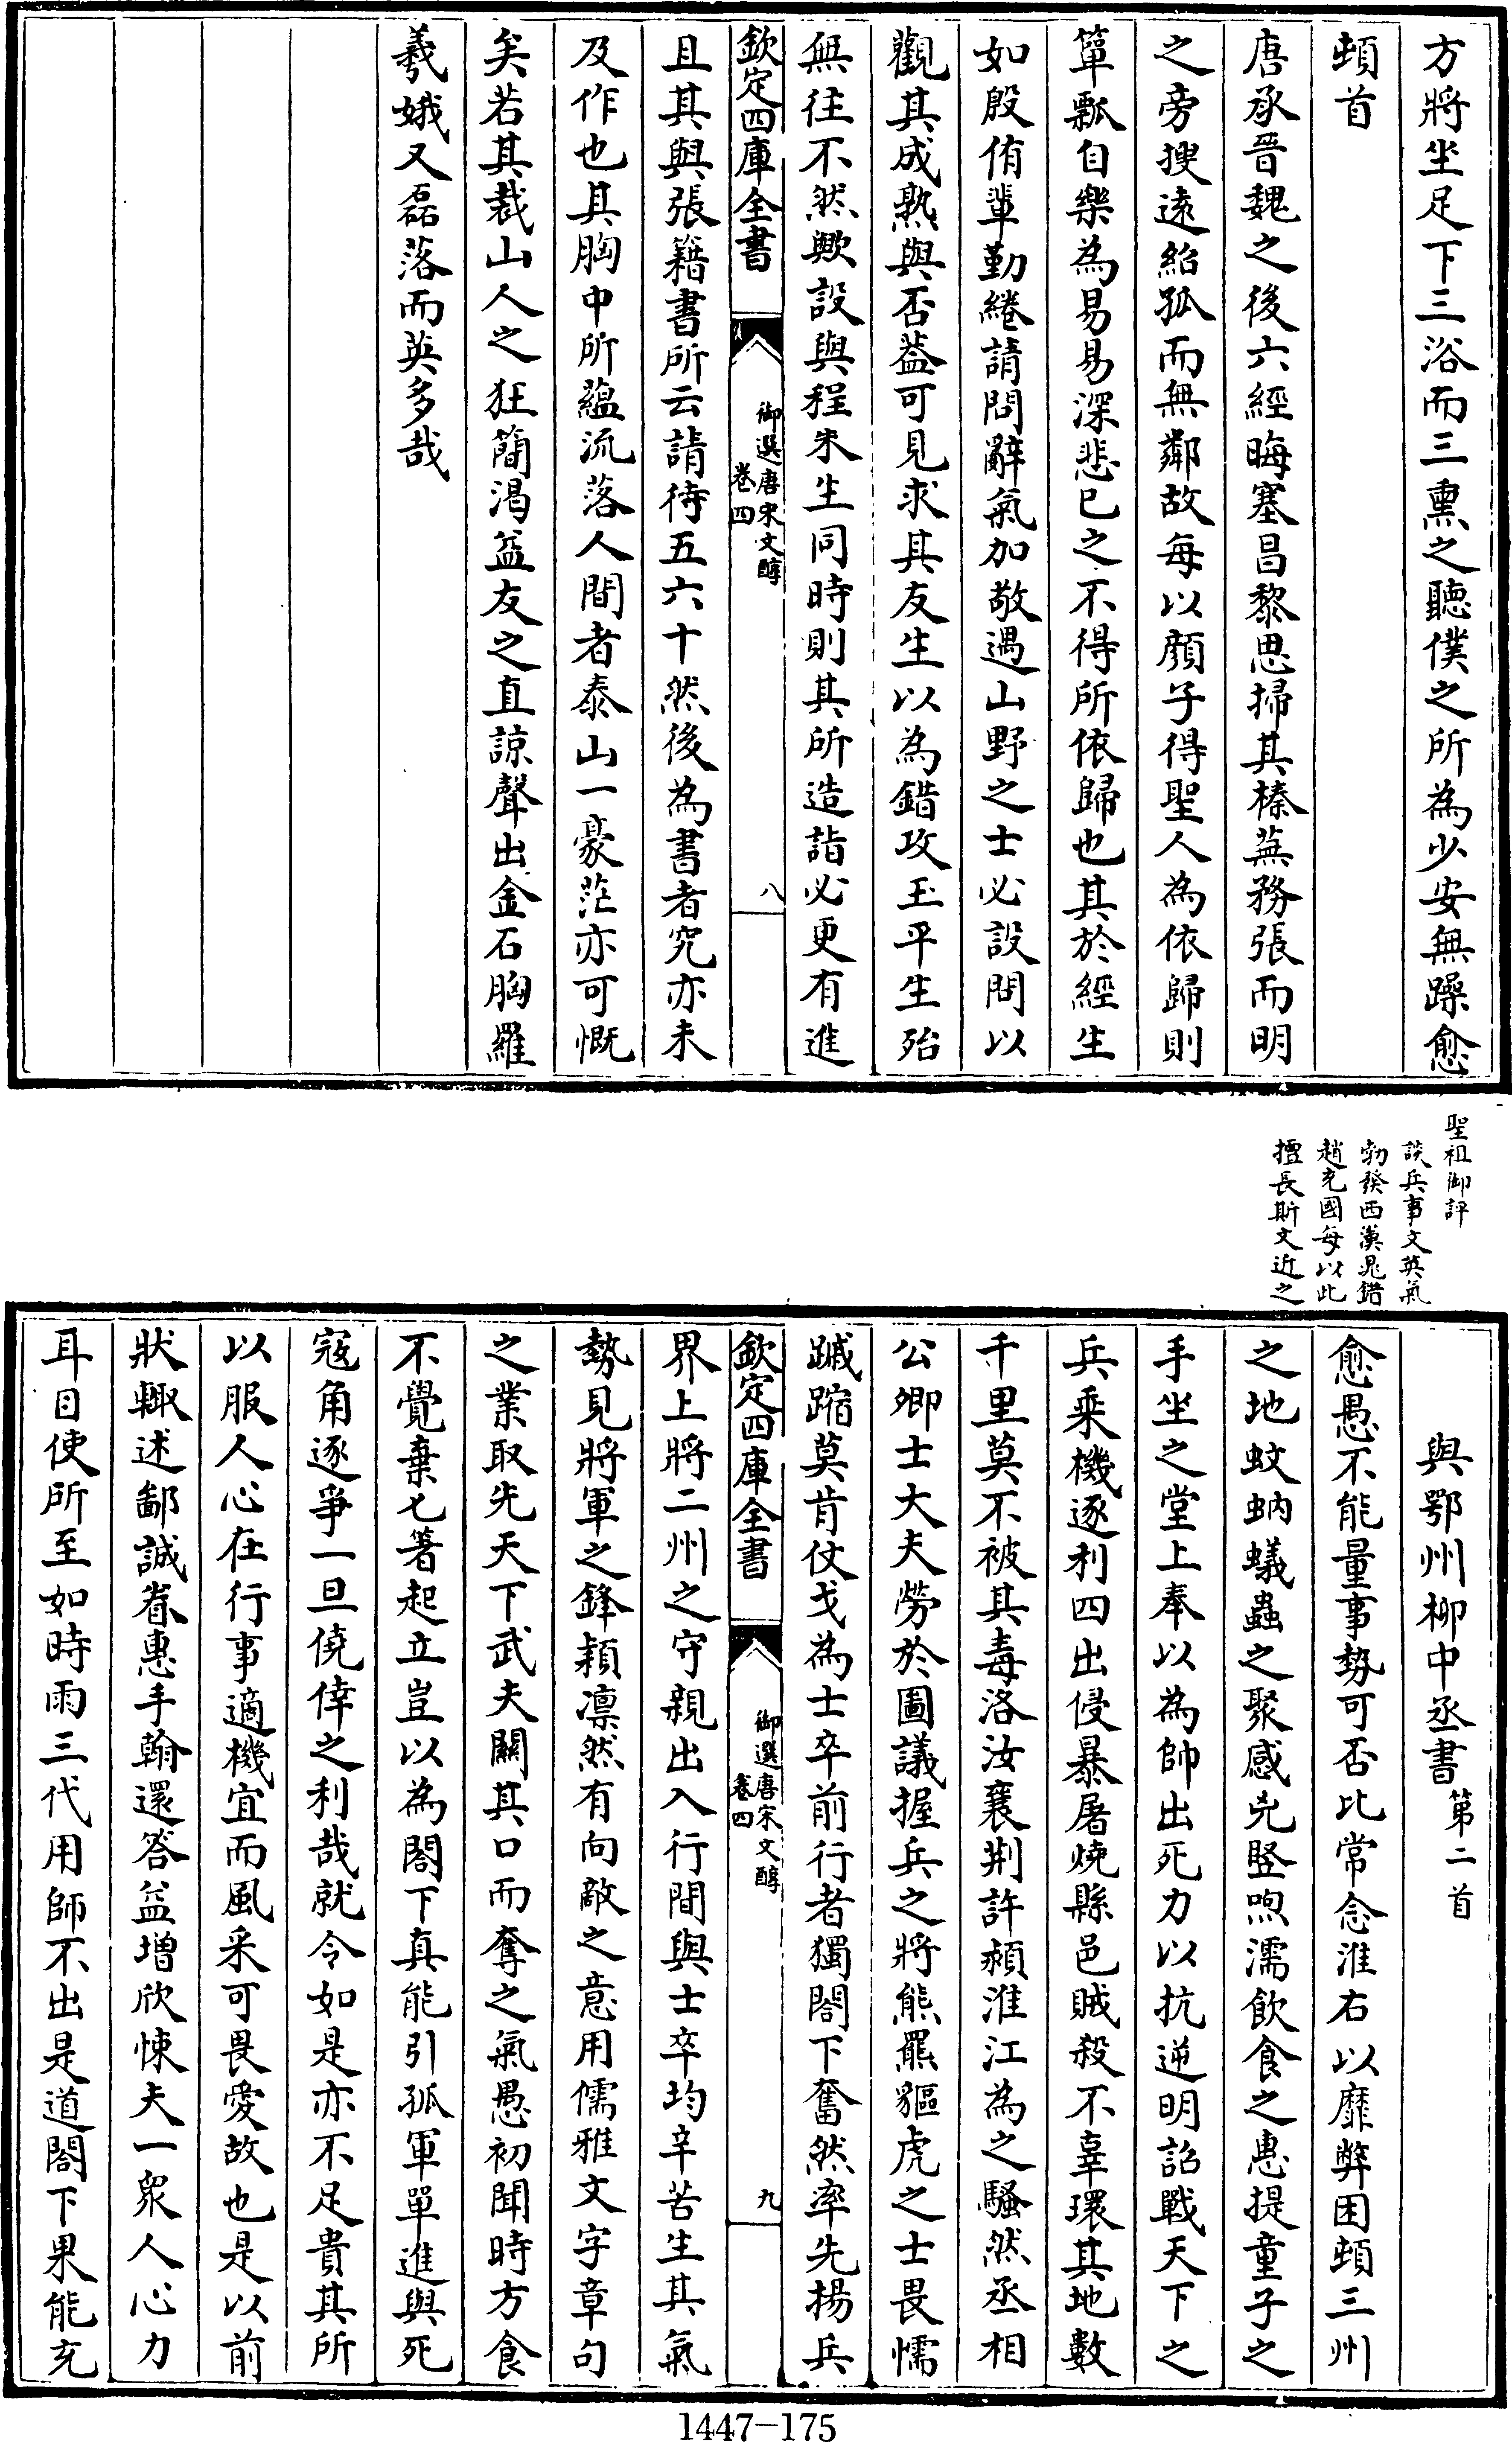 方將坐足下三浴而三熏之聽僕之所為少安無躁愈
頓首
唐承晉魏之後六經晦塞昌黎思掃其榛蕪務張而明
之旁搜遠紹孤而無鄰故每以顏子得聖人為依歸則
簞瓢自樂為易易深悲已之不得所依歸也其於經生
如殷侑輩勤綣請問辭氣加敬遇山野之士必設問以
觀其成熟與否葢可見求其友生以為錯攻玉平生殆
無往不然歟設與程朱生同時則其所造詣必更有進
欽定四庫全書
御選唐宋文醇
卷四
八
且其與張籍書所云請待五六十然後為書者究亦未
及作也具胸中所蘊流落人間者泰山一豪茫亦可慨
矣若其裁山人之狂簡渴益友之直諒聲出金石胸羅
羲娥又磊落而英多哉
聖祖御評
談兵事文英氣
勃發西漢鼂錯
趙充國每以此
擅長斯文近之
與鄂州柳中丞書第二首
愈愚不能量事勢可否比常念淮右以靡弊困頓三州
之地蚊蚋蟻蟲之聚感兇豎喣濡飲食之惠提童子之
手坐之堂上奉以為帥出死力以抗逆明詔戰天下之
兵乘機逐利四出侵暴屠燒縣邑賊殺不辜環其地數
千里莫不被其毒洛汝襄荆許潁淮江為之騷然丞相
公卿士大夫勞於圖議握兵之將熊羆貙虎之士畏懦
蹙蹜莫肯仗戈為士卒前行者獨閤下奮然率先揚兵
欽定四庫全書
御選唐宋文醇
卷四
九
界上將二州之守親出入行間與士卒均辛苦生其氣
勢見將軍之鋒穎凛然有向敵之意用儒雅文字章句
之業取先天下武夫關其口而奪之氣愚初聞時方食
不覺棄匕箸起立豈以為閤下真能引孤軍單進與死
寇角逐爭一旦僥倖之利哉就令如是亦不足貴其所
以服人心在行事適機宜而風采可畏愛故也是以前
狀輙述鄙誠眷惠手翰還答益增欣悚夫一衆人心力
耳目使所至如時雨三代用師不出是道閤下果能充
1447-175